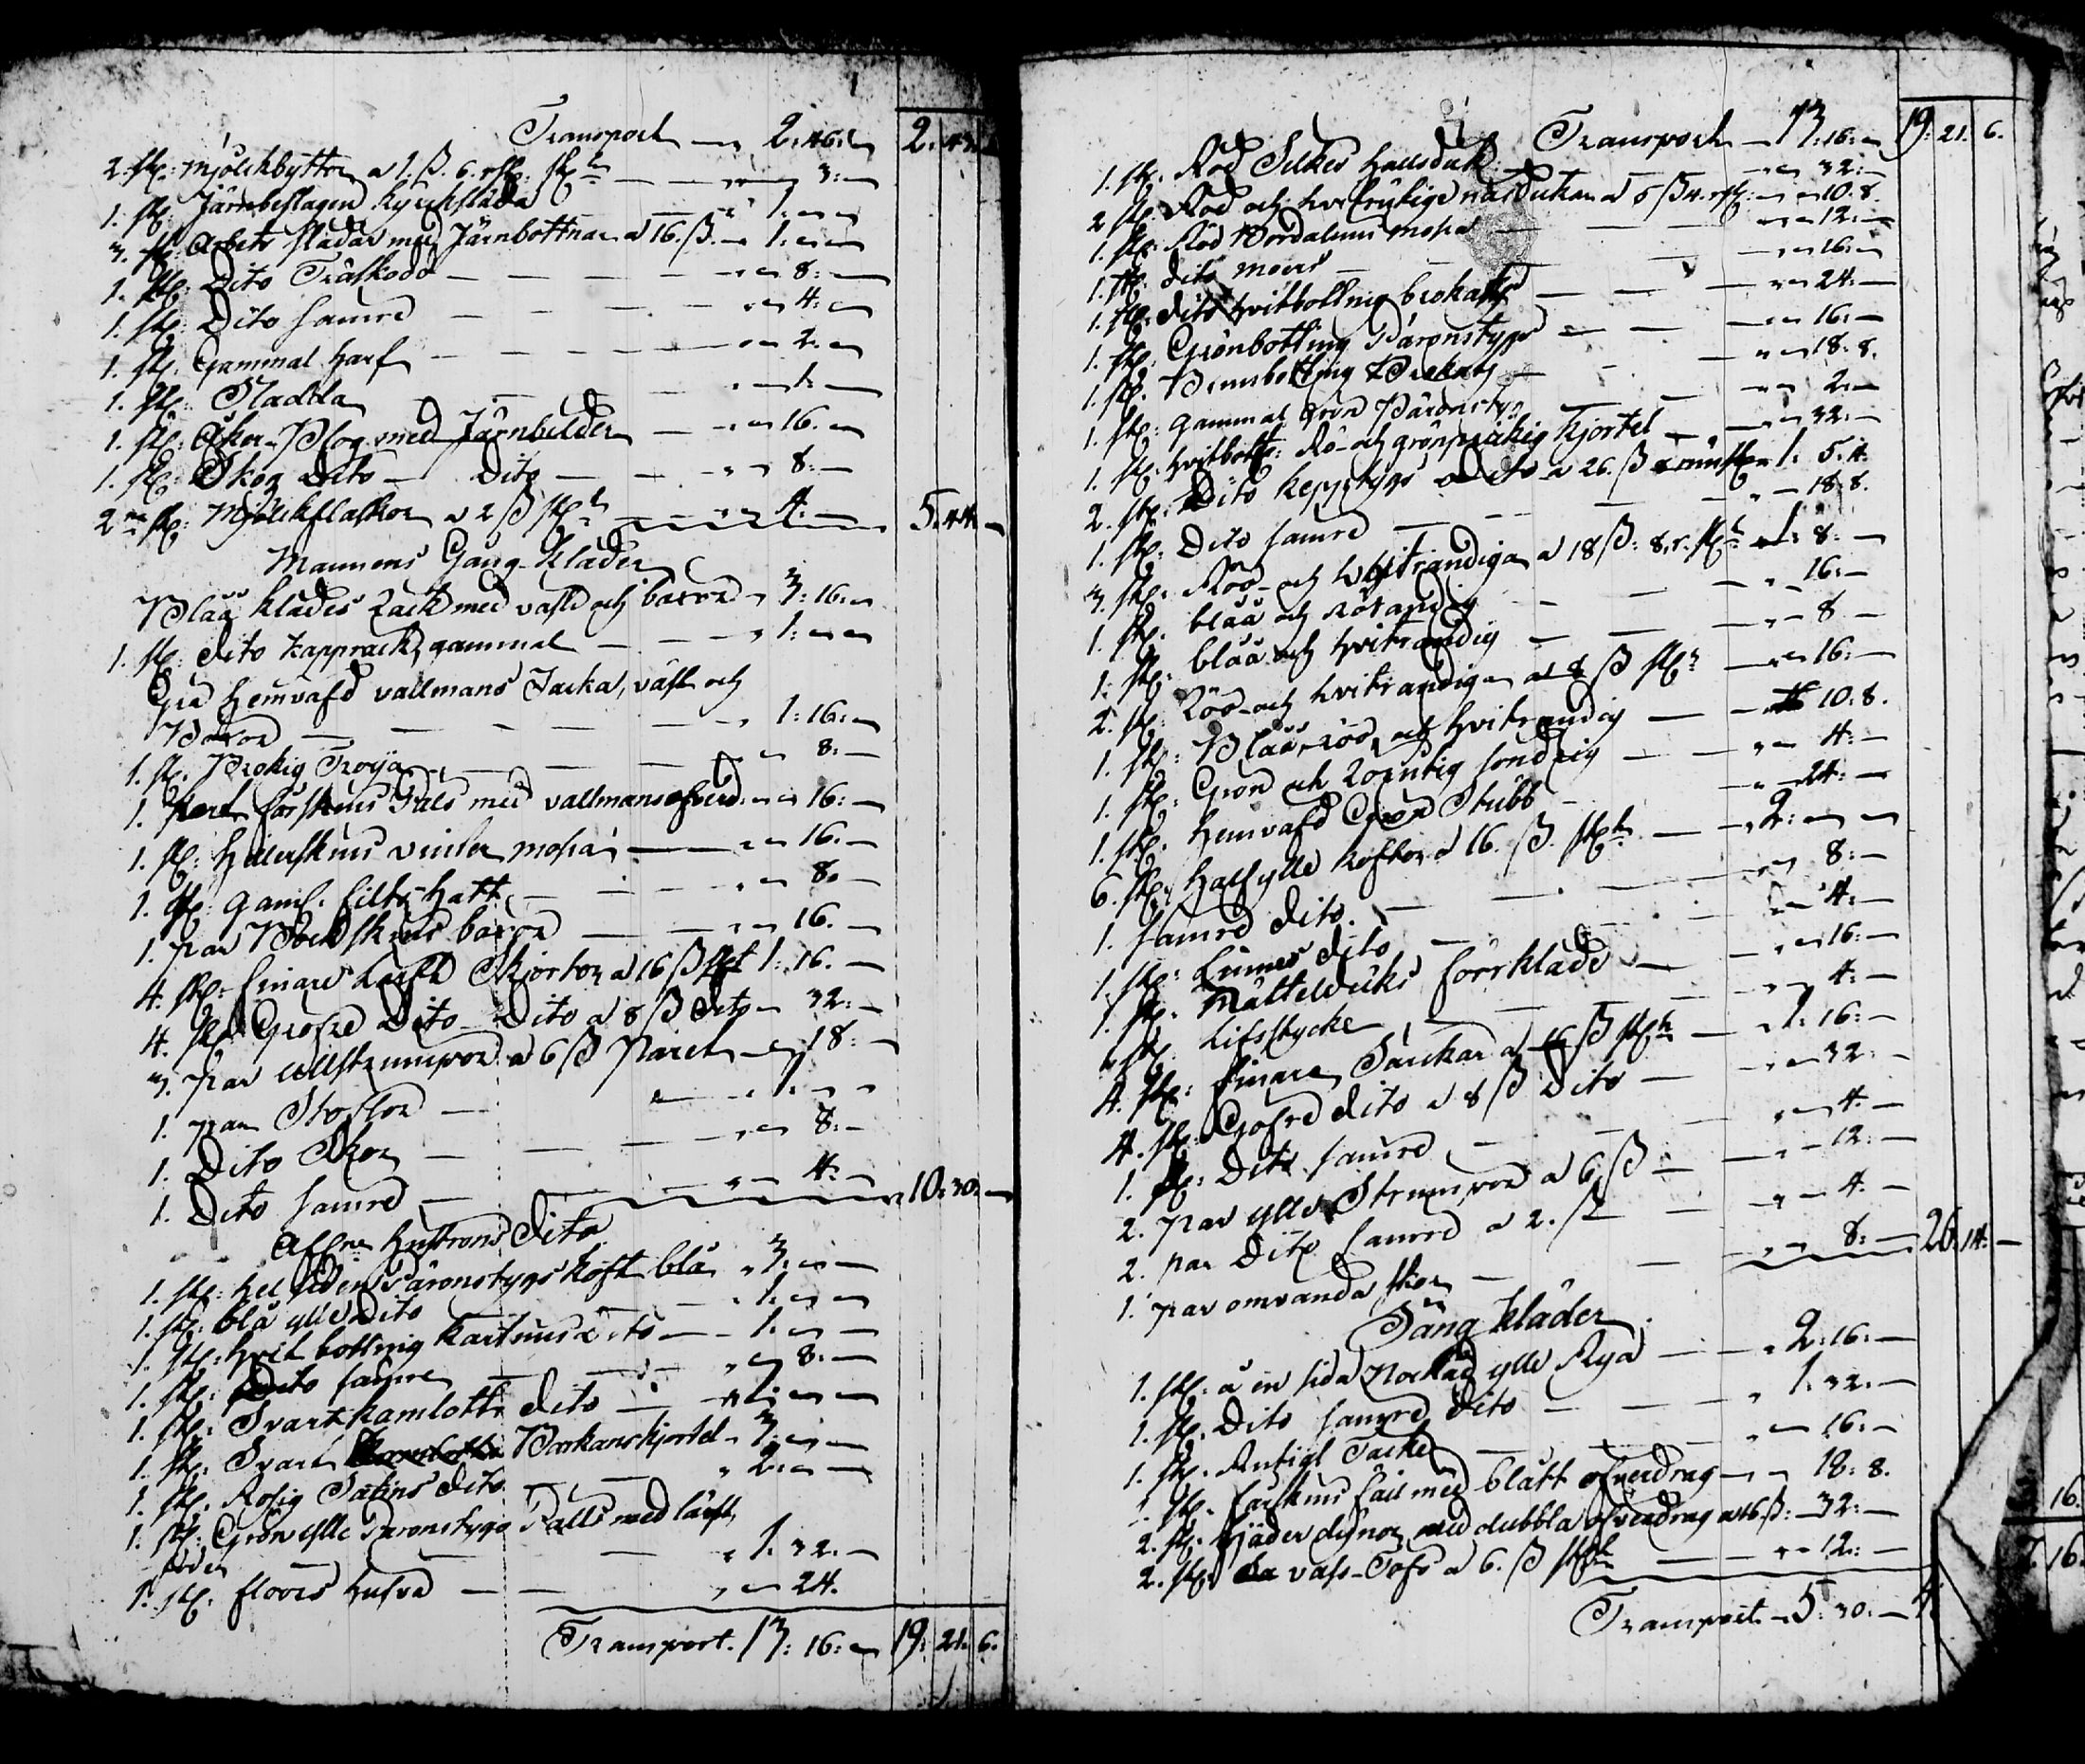 Transport — 2:46:— 2:43:
2 st: Mjölckbyttor a 1:ß. 6. rst: st — 3:—
1. st: Järnbeslagen Kyrckslåda — 1:——
3. st: Arbets slädar med Järnbottnar a 16.ß. — 1:——
1. st: Dito Träskodd — — 8:—
1. st: Dito samre — — 4:—
1. st: Gammal harf — — 2:—
1. st: Sladda — — 1:—
1. st: Åker-Plog med Järnbilder — — 16.—
1. st: Skog Dito — Dito — — 8:—
2 st: Mjölckflaskor a 2 ß st — 4:— 5:44:—
Mannens Gång-Kläder
Blåa klädes Råck med väst och baxor — 3:16:—
1. st: dito Kapprack, gammal — 1:——
Grå Hemväfd vallmans Jacka, väst och
Boxor — 1:16:—
1. st: Brokig Tröya — — 8:—
1. Fårskins Päls med vallmansöfverd: — 16:—
1. st: vinter mössa — — 16.—
1. st: Gaml. filts-Hatt — — 8:—
1. par Bockskins baxor — — 16.—
4. st: finare Lärfts Skjortor a 16 ß st 1:16.—
4. st: Grofre Dito Dito a 8 ß dito — 32:—
3. par Ullstrumpor a 6 ß Paret — 18:—
1. par Stöflor — 1:——
1: Dito Skor — — 8:—
1. Dito samre — — 4:— 10:30:—
Afl:ne Hustrons Dito
1. st: hel siden Päronstygs Koft blå — 3:——
1. st: blå ylle Dito — 1:——
1 st: Hvit bottnig Kartuns Dito — 1:——
1. st: Dito samre — — 8:—
1 st: Svart kamlotts dito — 1:——
1. st: Svart Barkanskjortel — 3:——
1 st: Rosig Satins dito — 2:——
1: st: Grön ylle Päronstygs Palls med lärft
foder — 1:32.—
1: st: floors hufva — — 24.
Transport. 13:16:— 19:21:6.
Transport — 13:16:— 19:21:6.
1. st: Röd Silkes Hallsduk — — 32:—
2 st: Röd och hvitrutige näsdukar a 5 ß 4. rst: — 10.8.
1. st: Röd mössa — — 12:—
1. st: dito moers — — 16:—
1. st: dito hvitbottnig brokatts — — 24:—
1. st: Grönbottnig Päronstygs — — 16:—
1. st: Brunbottnig Brokatts — — 18.8.
1. st: gammal grön Päronstygs — — 2:—
1. st: hvitbott: Rö- och grönprickig Kjortel — — 32:—
2. st: Dito keppstygs dito a 26. ß — 1:5.4.
1. st: Dito samre — — 18.8.
3. st: Röd- och hvitrandiga a 18 ß: 8.r. st — 1:8:—
1. st: blåa och Rörandig — — 16:—
1. st: blåa och hvitrandig — — 8—
2. st: Röd- och hvitrandiga a 8 ß st — — 16:—
1. st: Blåa, röd, och hvitrandig — — 10:8.
1. st: Grön och söndrig — — 4:—
1. st: Hemväfd Grön Stubb — — 24:—
6. st: Halfylle Koftor a 16. ß. st — 2:——
1. samre Dito. — — 8:—
1. st: Linnes dito — — 4:—
1. st: förrkläde — — 16:—
st: Lifstycke — — 4:—
4. st: finare Särckar a 16 ß st — 1:16:—
4. st: Grofre dito a 8 ß Dito — — 32:—
1. st: Dito samre — — 4—
2. par ylle Strumpor a 6. ß — — 12:—
2. par Dito samre a 2. ß — — 4.—
1. par omvända skor — — 8:— 26:14:—
Säng kläder
1. st: å en sida Nockad ylle Rya — 2:16:—
1. st: Dito samre Dito — 1:32:—
1. st: Rutigt Täcke — — 16:—
1. st: fårskins fäll med blått öfverdrag — 18:8.
2. st: fjäder dynor med dubbla öfverdrag a 16.ß: — 32:—
2. st: a 6. ß st — — 12:—
Transport — 5:30:— 4